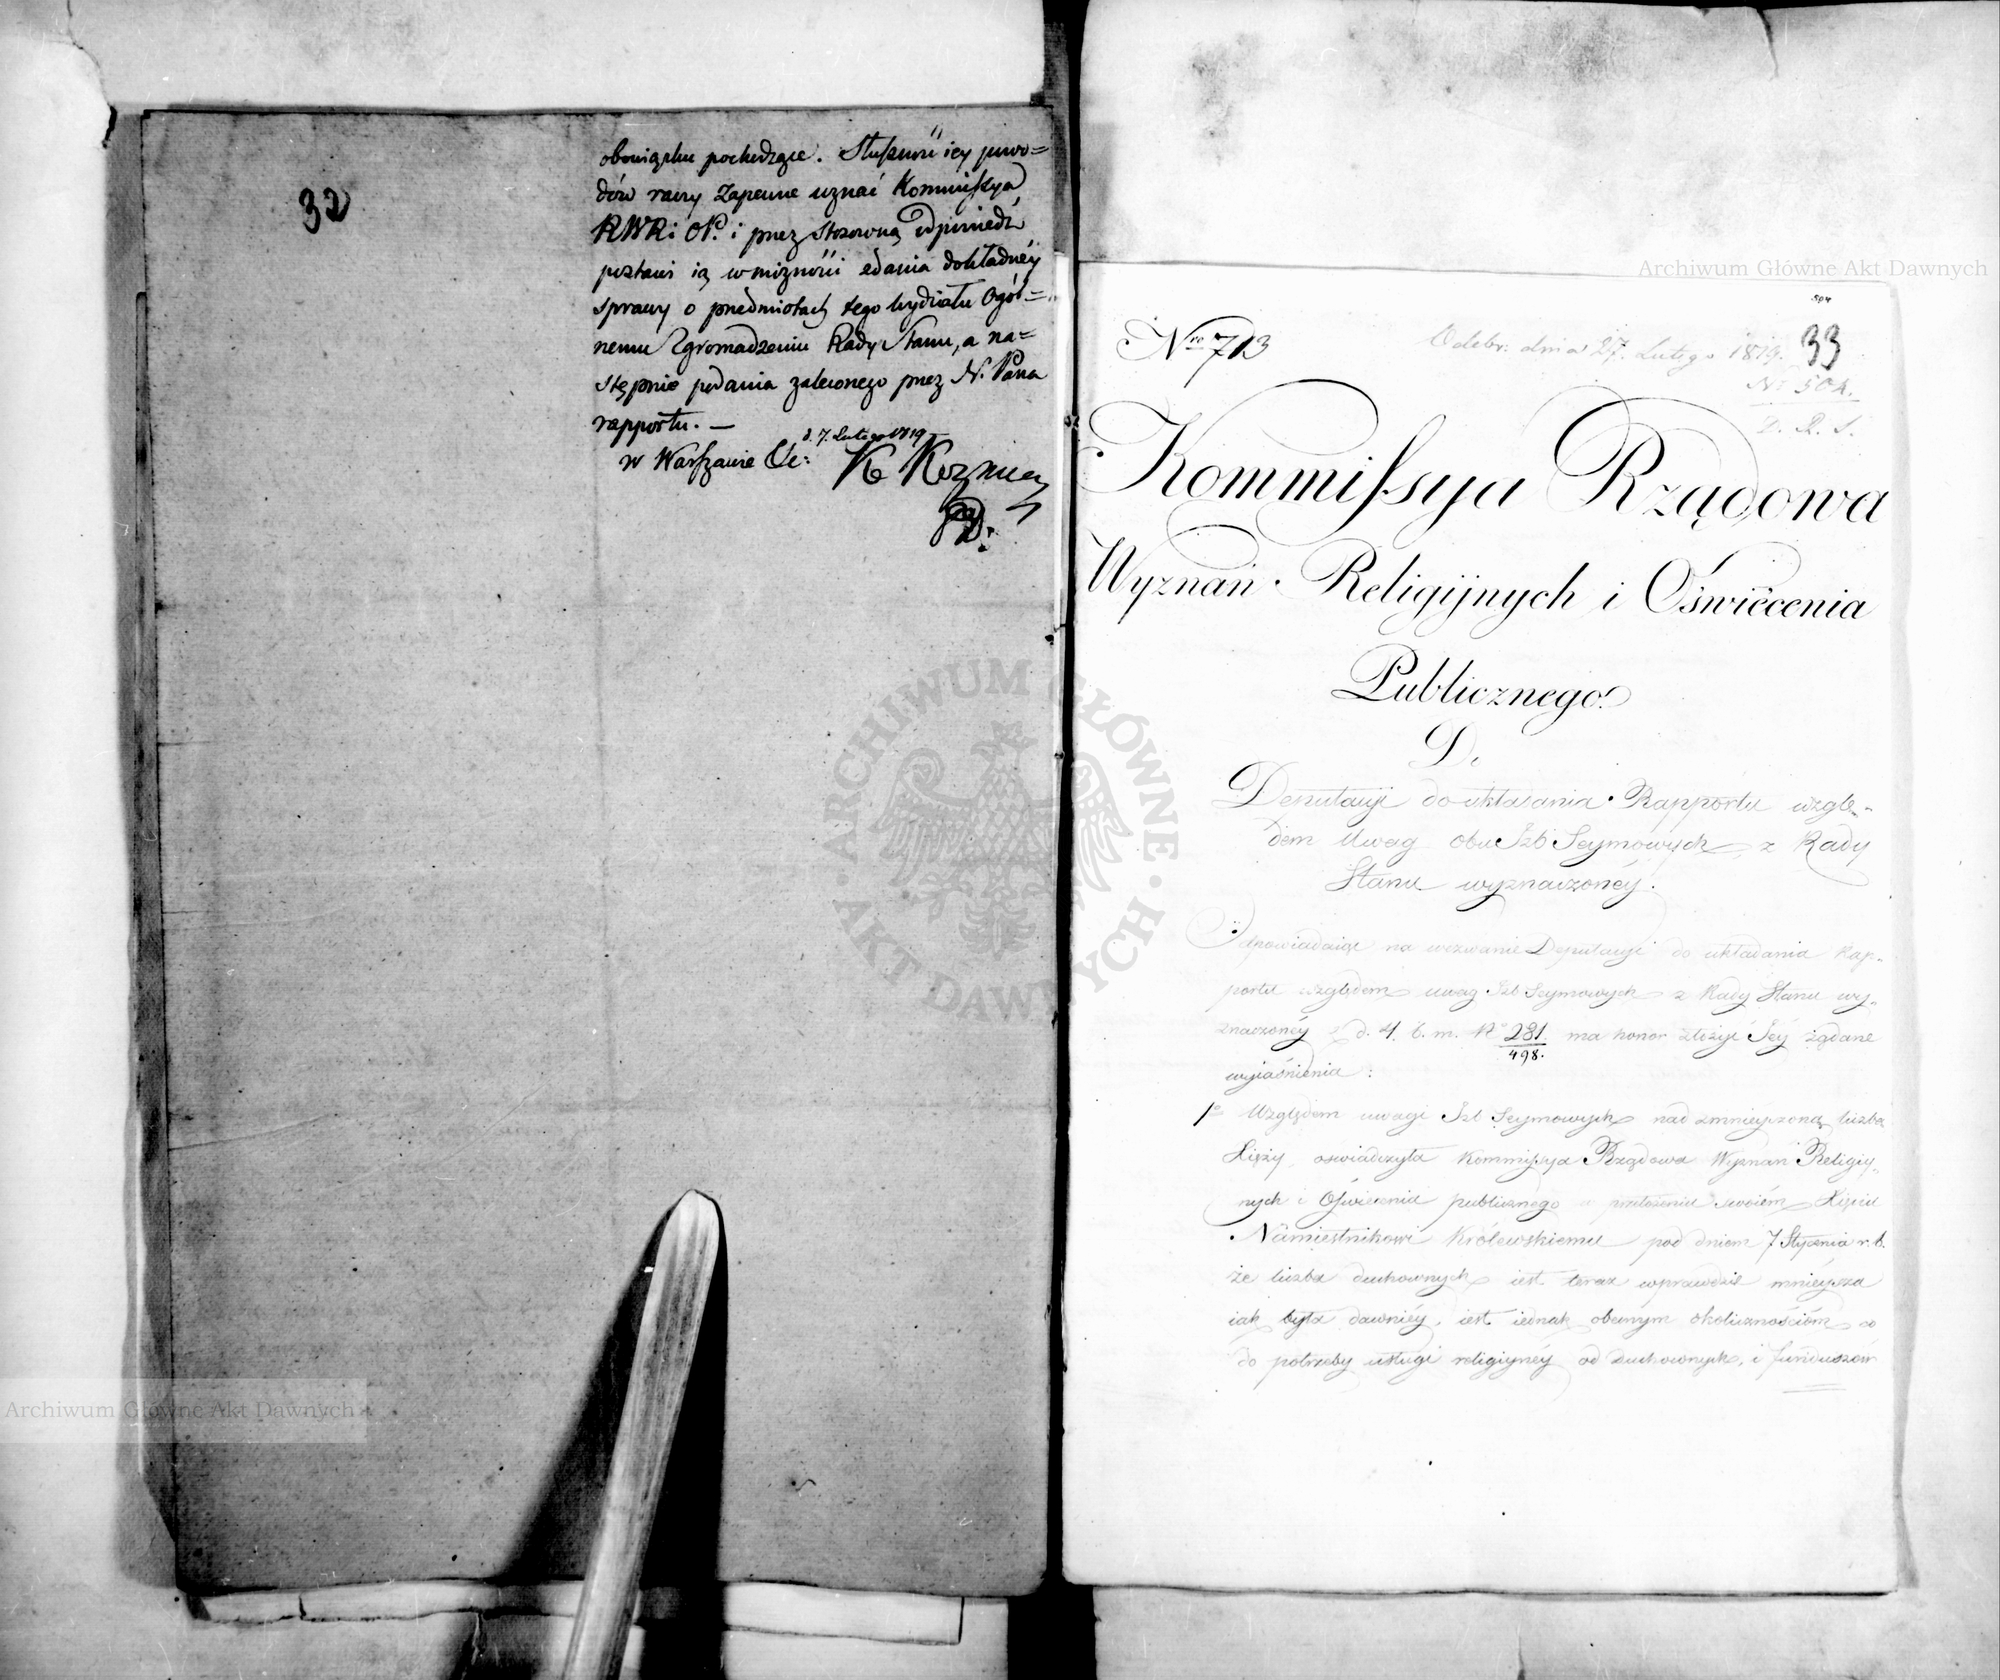 32
obowiązku pochodzące. Słuszność iey powo=
dów raczy zapewne uznać Kommissya
RWR i OP. i przez stosowną odpowiedź
postawi ią w możności zdania dokładnéy
sprawy o przedmiotach tego wydziału Ogól=
nemu Zgromadzeniu Rady Stanu, a na=
stępnie podania zaleconego przez N. Pana
rapportu. —
d. 7. Lutego 1819
w Warszawie K Kozmian
504
Nro 713
Odebr: dnia 27. Lutego 1819. 33
Nr 504.
D. R. S.
Kommissya Rządowa
Wyznań Religijnych i Oświecenia
Publicznego.
D.
Deputacyi do układania Rapportu wzglę=
dem Uwag obu Izb Seymowych z Rady
Stanu wyznaczonéy.
Odpowiadaiąc na wezwanie Deputacyi do układania Rap=
portu względem uwag Izb Seymowych z Rady Stanu wy=
znaczonéy d. 4. b. m. No 281. ma honor złożyć Jéy żądane
498.
wyiaśnienia:
1o Względem uwagi Izb Seymowych nad zmnieyszoną liczbą
Xięży, oświadczyła Kommissya Rządowa Wyznań Religiy=
nych i Oświecenia publicznego w przełożeniu swoiém Xięciu
Namiestnikowi Królewskiemu pod dniem 7 Stycznia r. b.
że liczba duchownych iest teraz wprawdzie mnieysza
iak była dawniéy, iest iednak obecnym okolicznościom co
do potrzeby usługi religiynéy od duchownych, i funduszów
Archiwum Główne Akt Dawnych
Archiwum Główne Akt Dawnych
ARCHIWUM GŁÓWNE AKT DAWNYCH